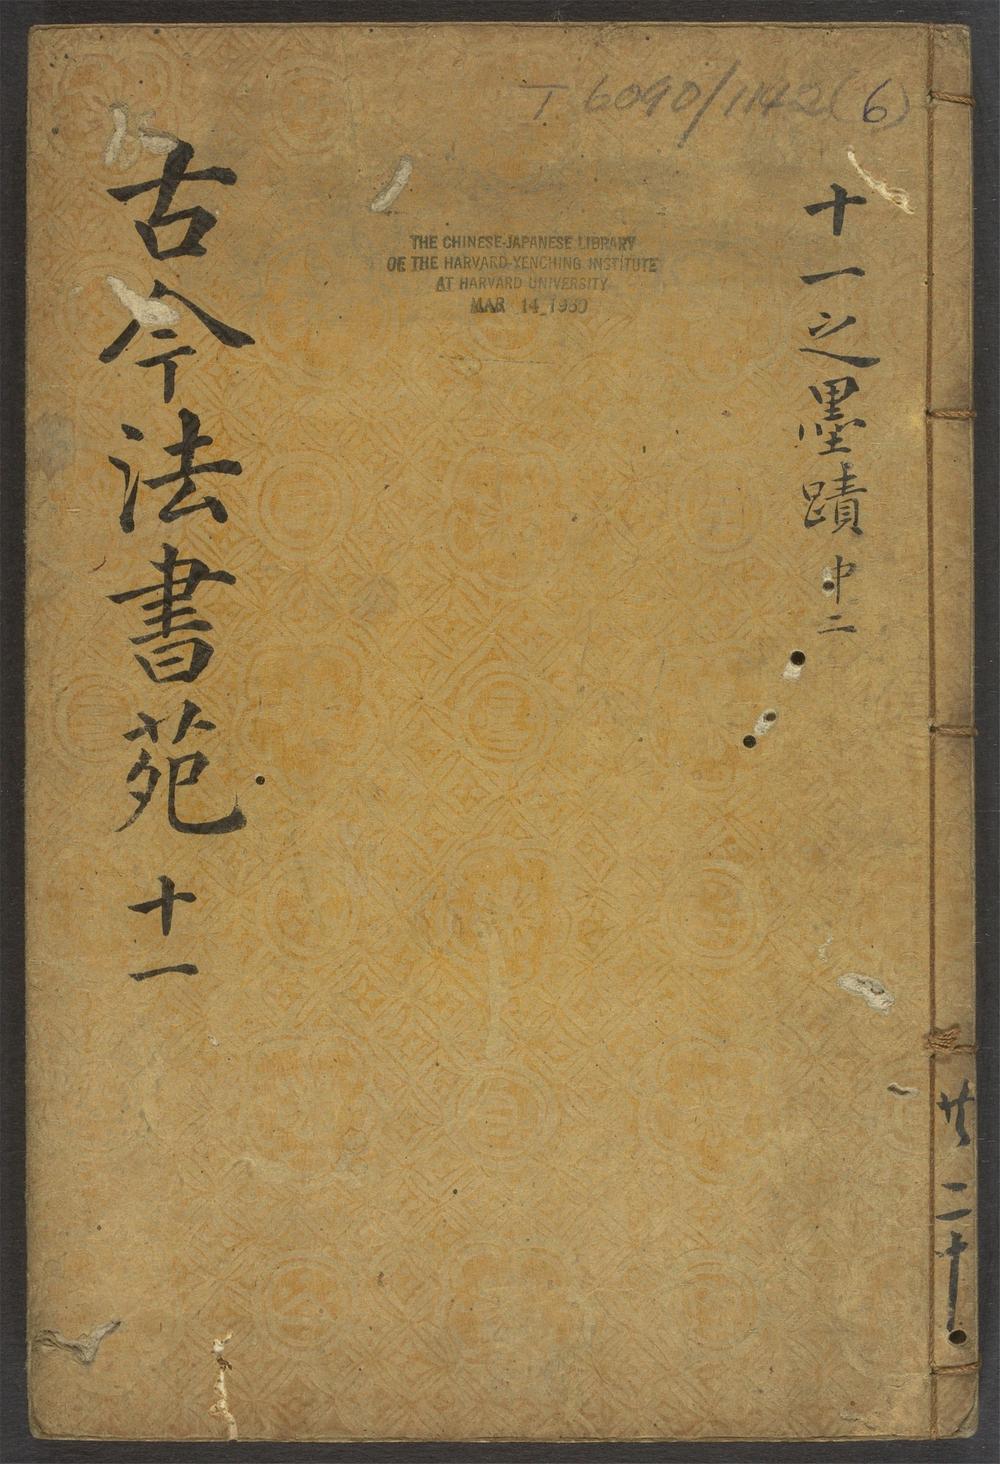 T 6090/1142(6)
THE CHINESE-JAPANESE LIBRARY
OF THE HARVARD-YENCHING INSTITUTE
AT HARVARD UNIVERSITY
MAR 14 1950
十一之墨蹟 中二
古今法書苑 十一
共二十